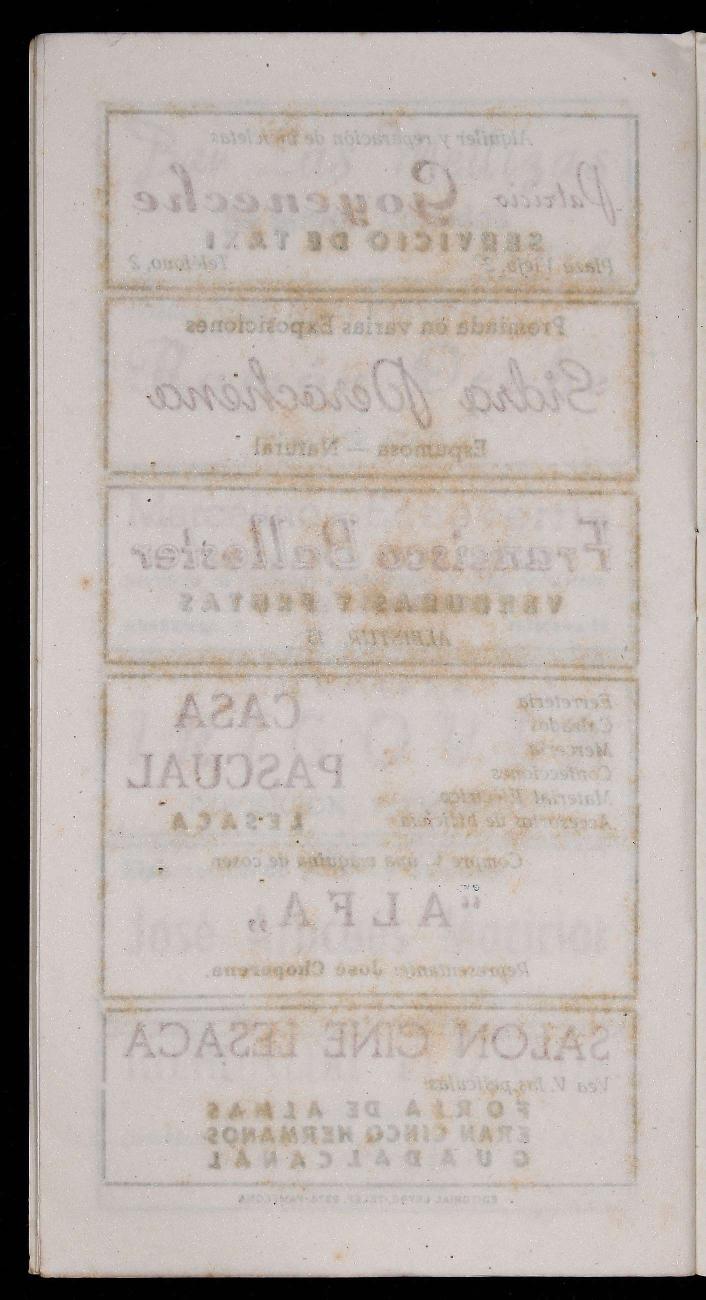 Alquiler y reparación de bicicletas
Patricio Goyeneche
SERVICIO DE TAXI
Plaza Vieja, Teléfono, 2
Premiada en varias Exposiciones
Sidra Perochena
Espumosa — Natural
Francisco Ballester
VERDURAS Y FRUTAS
Ferretería
Calzados
Mercería
Confecciones
Material Eléctrico
Accesorios de bicicleta
CASA
PASCUAL
LESACA
Compre V. una máquina de coser
“ALFA„
Representante: José Choperena.
SALON CINE LESACA
Vea V. las películas:
FORJA DE ALMAS
ERAN CINCO HERMANOS
GUADALCANAL